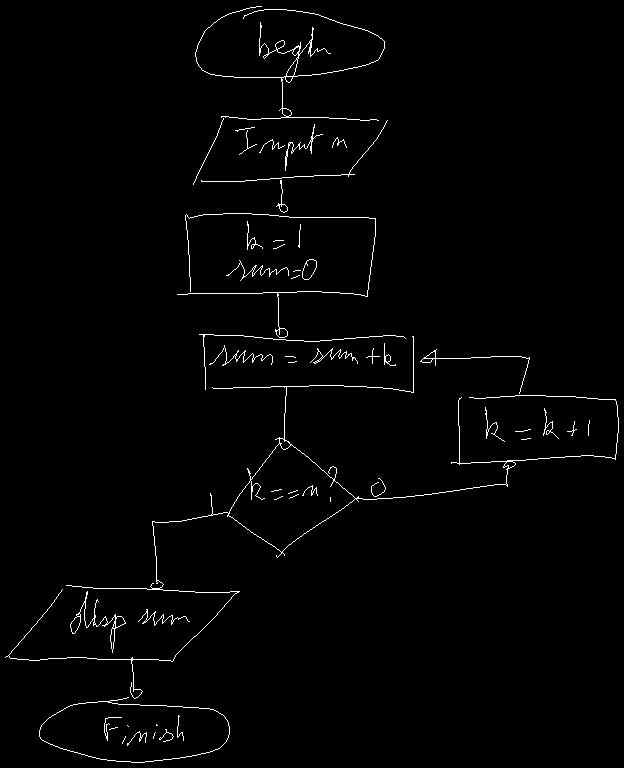 begin
Input n
k = 1
sum=0
sum = sum + k
k = k + 1
k == n?
1
0
disp sum
Finish